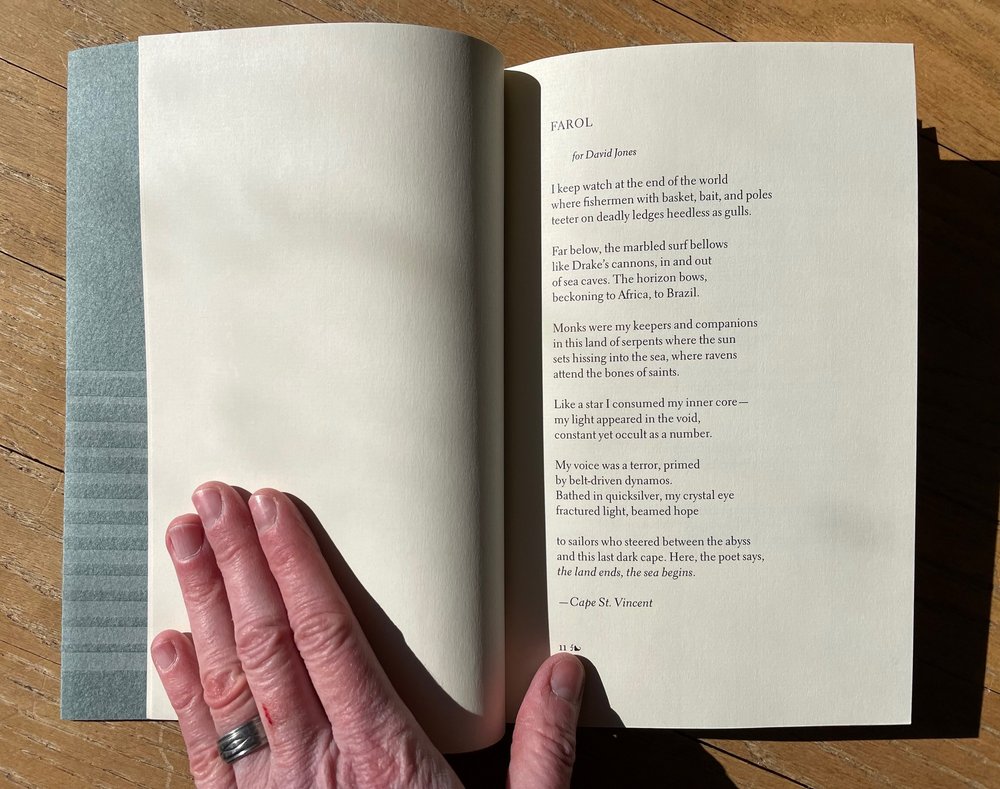 FAROL
for David Jones
I keep watch at the end of the world
where fishermen with basket, bait, and poles
teeter on deadly ledges heedless as gulls.
Far below, the marbled surf bellows
like Drake’s cannons, in and out
of sea caves. The horizon bows,
beckoning to Africa, to Brazil.
Monks were my keepers and companions
in this land of serpents where the sun
sets hissing into the sea, where ravens
attend the bones of saints.
Like a star I consumed my inner core—
my light appeared in the void,
constant yet occult as a number.
My voice was a terror, primed
by belt-driven dynamos.
Bathed in quicksilver, my crystal eye
fractured light, beamed hope
to sailors who steered between the abyss
and this last dark cape. Here, the poet says,
the land ends, the sea begins.
—Cape St. Vincent
11